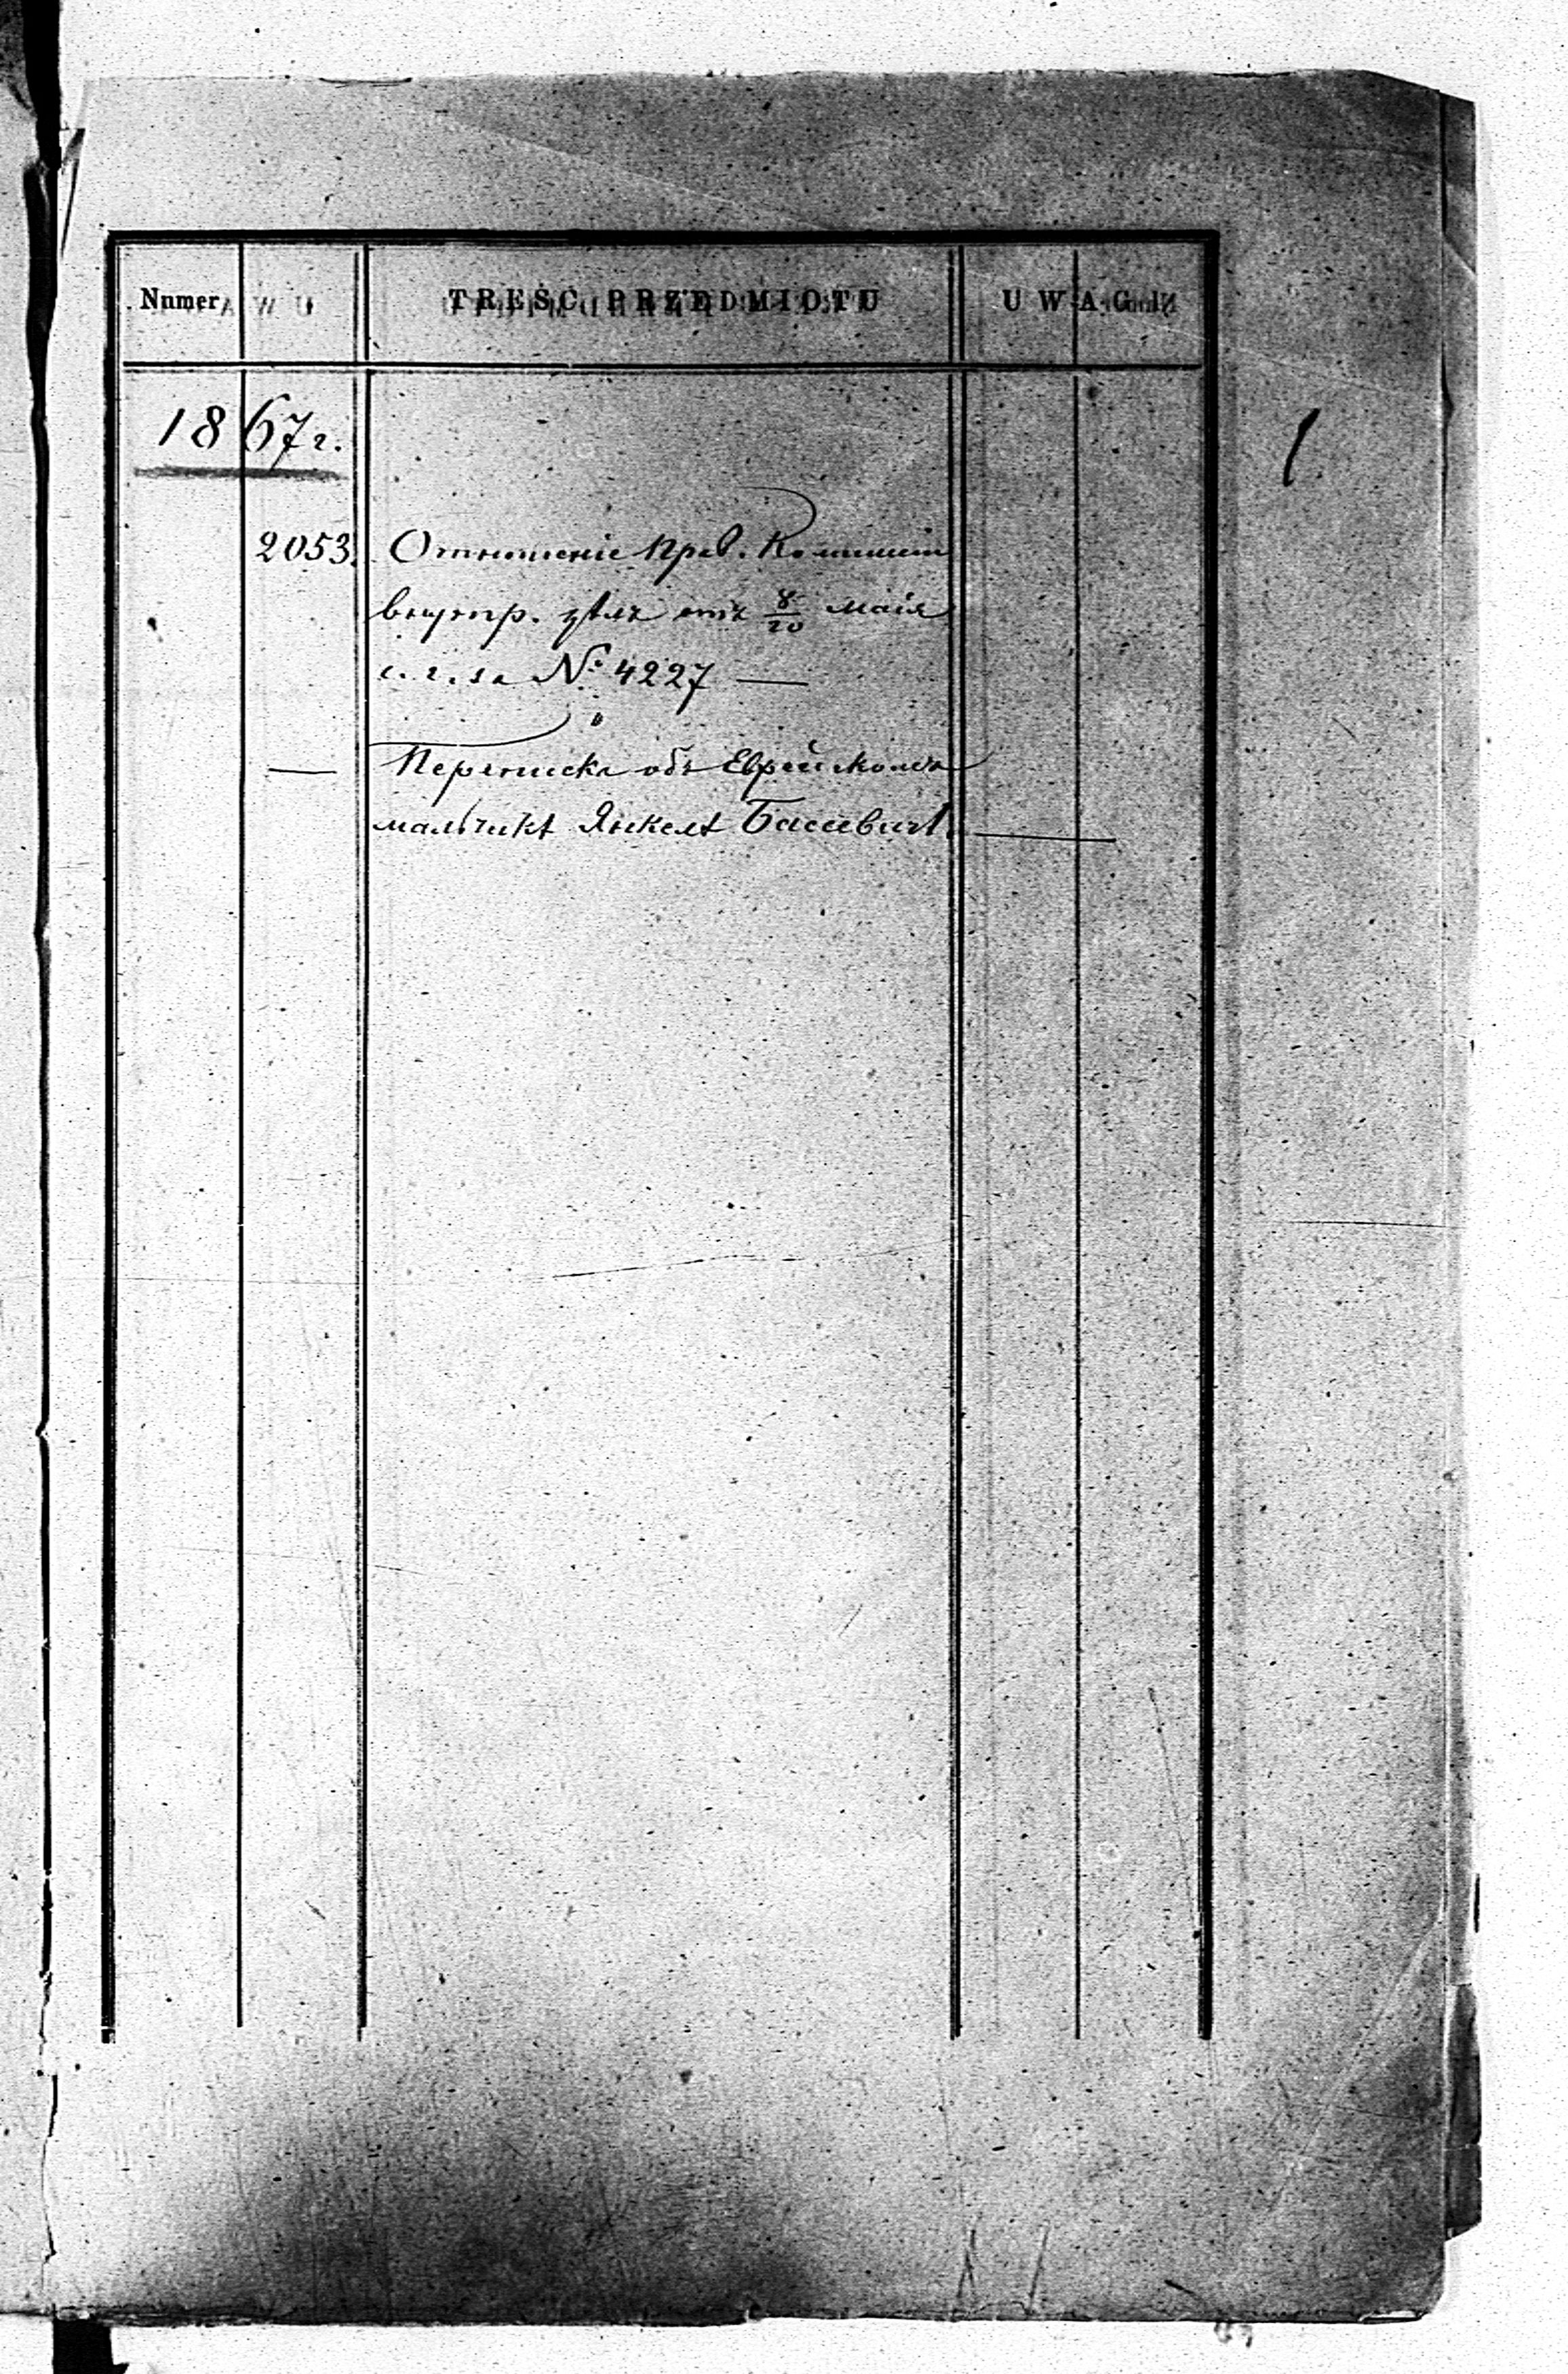 Numer
TREŚĆ PRZEDMIOTU
UWAGI
1867 г.
1
2053. Отношеніе Прав. Коммиссіи
внутр. дѣлъ отъ 8/20 маія
с. г. за № 4227 —
— Переписка объ Еврейскомъ
мальчикѣ Янкелѣ Басевичѣ. —